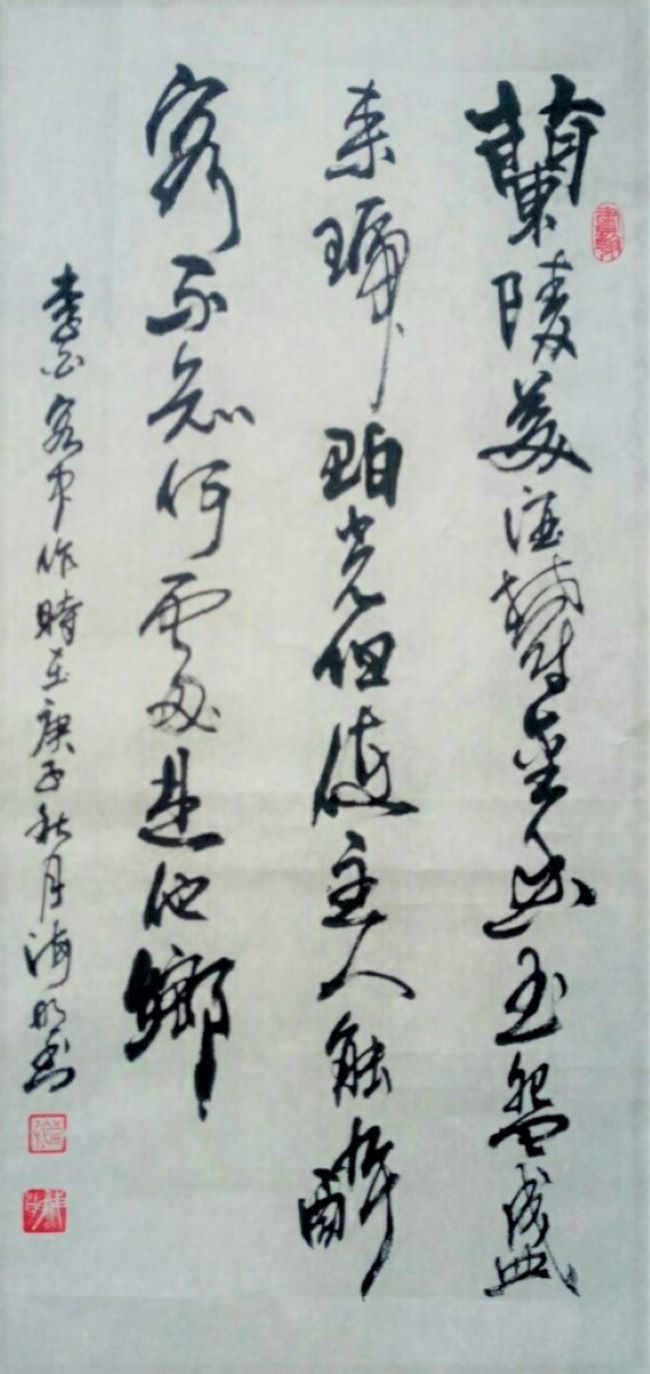 蘭陵美酒鬱金香玉盌盛
来琥珀光但使主人能醉
客不知何處是他鄉
李白客中作時在庚子秋月海明書